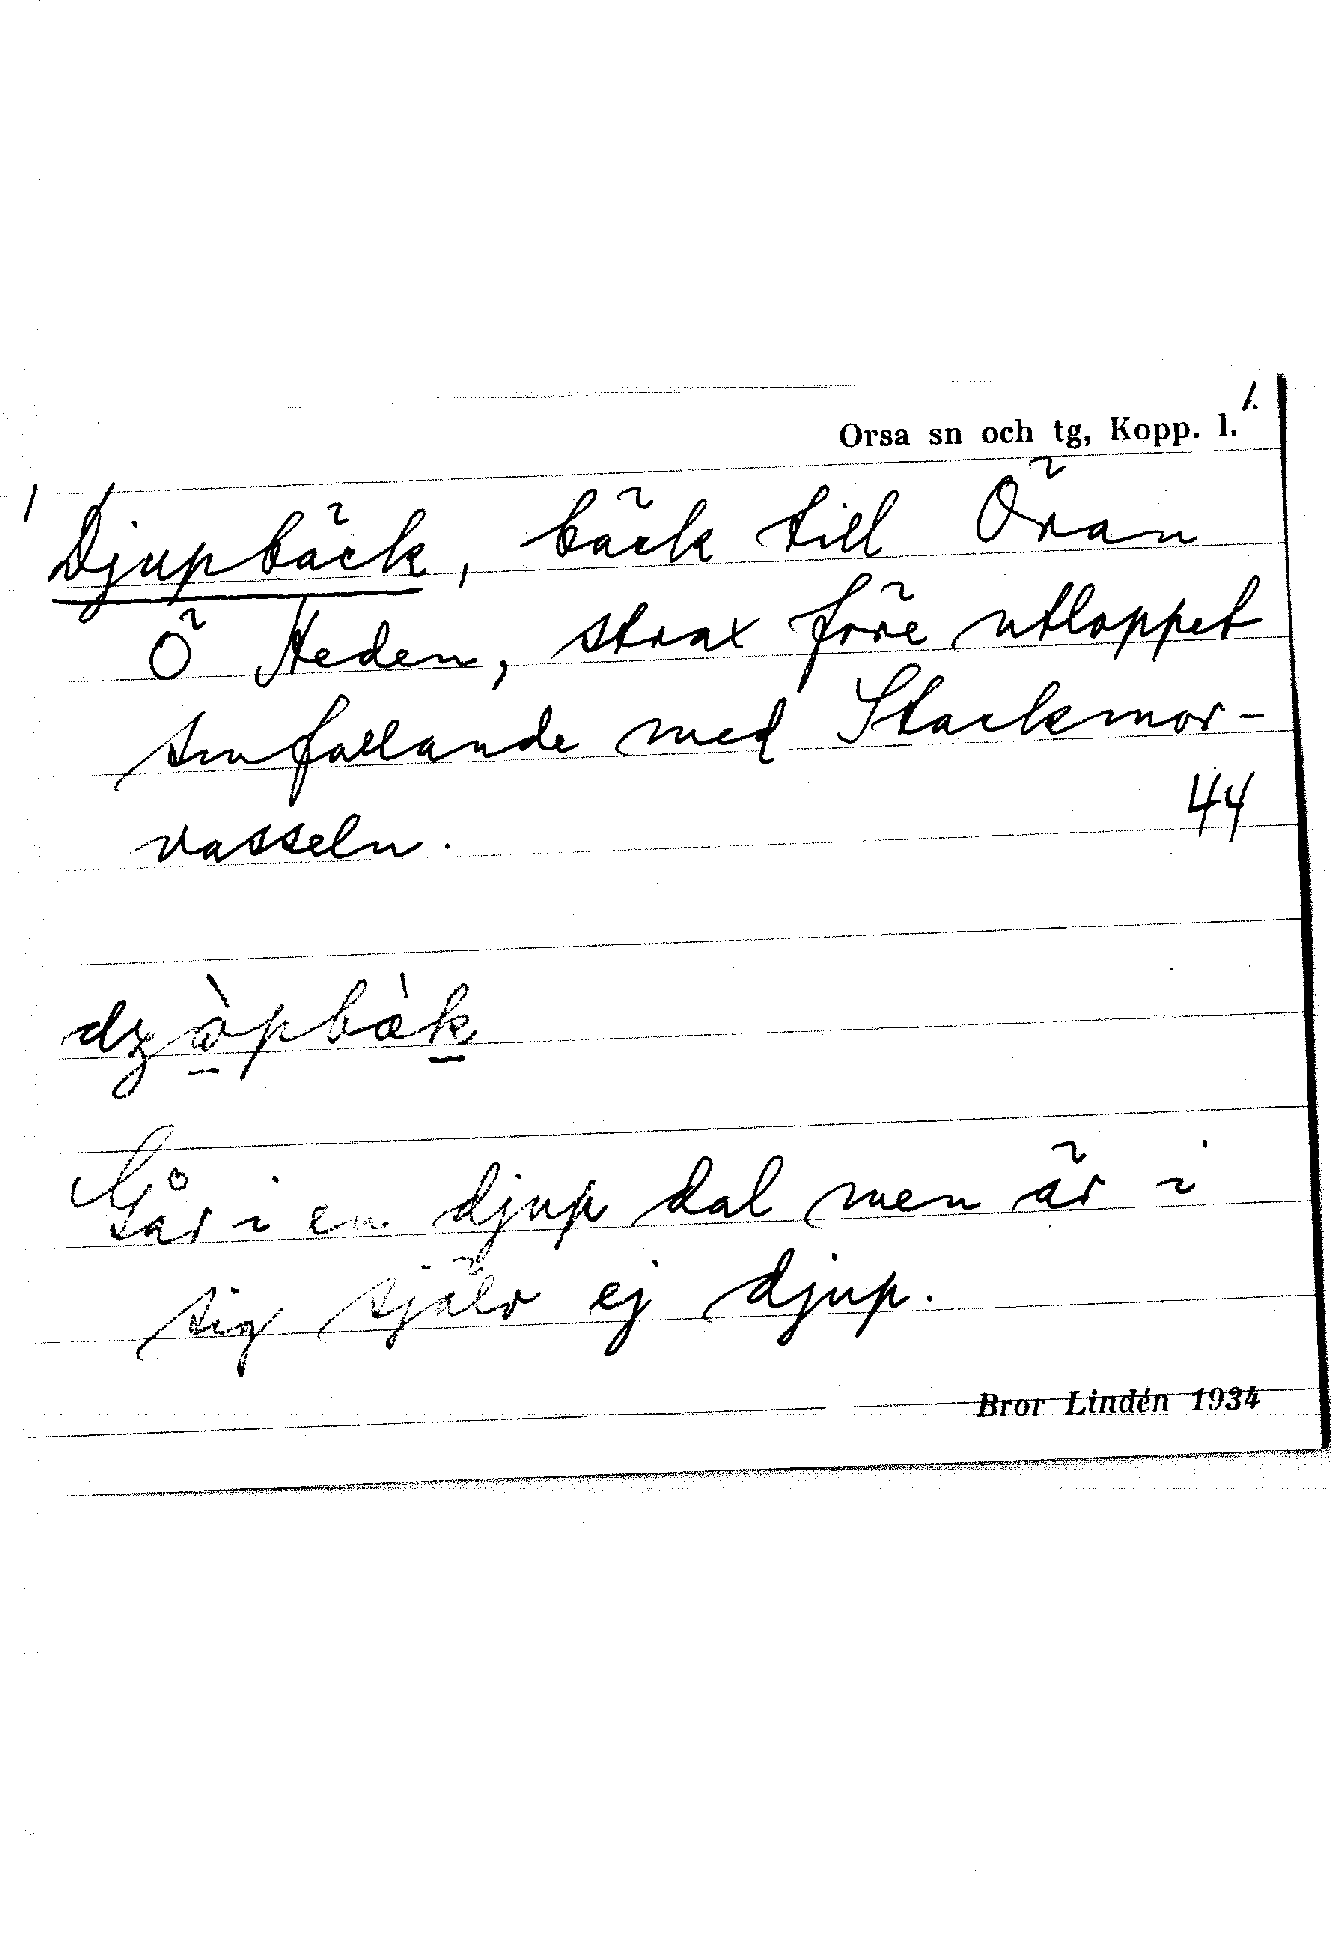 Orsa sn och tg, Kopp. l. 1.
1 Djupbäck, bäck till Öran
Ö Heden, strax före utloppet
smfallande med Stackmor-
vasseln. 44
dzòpbàk
Går i en djup dal men är i
sig själv ej djup.
Bror Lindén 1934